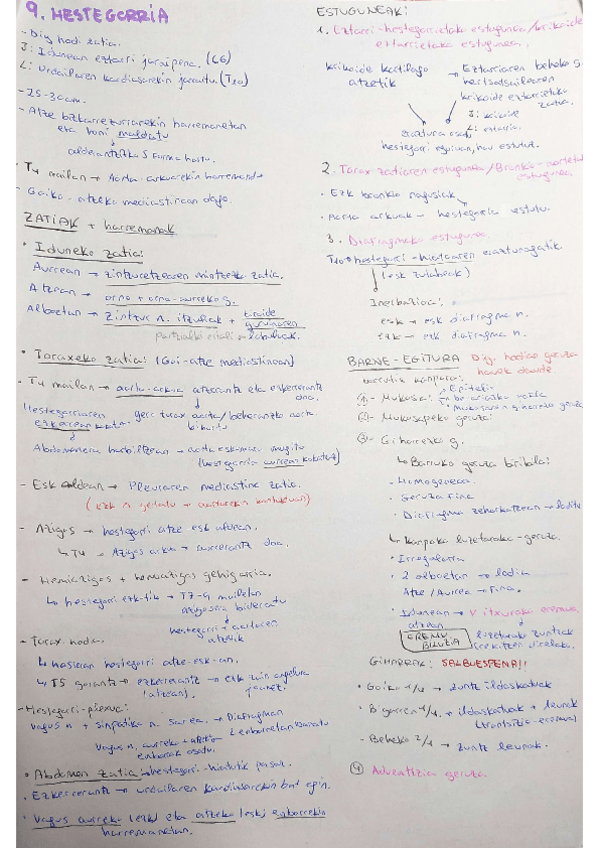 9. HESTEGORRIA
- Dig. hodi zatia.
J: Idunean eztarri jarraipena. (C6)
L: Urdailaren kardiasarekin jarraitu (T10)
- 25-30cm.
- Atze bizkarrezurrarekin harremanetan
eta honi maldatu
alderantzizko S forma hartu.
- T4 mailan → Aorta-arkuarekin harremanetan
- Goiko-atzeko mediastinoan dago.
ZATIAK + harremanak
• Iduneko zatia:
Aurrean → zintzurestearen mintzezko zatia.
Atzean → orno + orno-aurreko g.
Alboetan → Zintzur n. itzuliak + tiroide guruinaren
partzialki estali → lobuluak.
• Toraxeko zatia: (Goi-atze mediastinoan)
- T4 mailan → aorta-arkua atzerantz eta ezkerrerantz doa.
Hestegorriaren ezkerrean kokatu
gero torax aorta/beheranzko aorta bihurtu
Abdomenera hurbiltzean → aorta esk-inaz mugitu
(hestegorria aurrean kokatuz)
- Esk aldean → Pleuraren mediastino zatia.
- Azigos → hestegorri atze esk aldean.
↳ T4 → Azigos arkua → aurrerantz doa.
- Hemiazigos + hemiazigos gehigarria.
↳ hestegorri ezk-tik → T7-9 mailetan
azigosera bideratu
hestegorri + aortaren atzetik
- Torax-hodia.
↳ hasieran hestegorri atze-esk-an.
↳ T5 gorantz → ezkerrerantz → ezk zain angelura
(atzean).
- Hestegorri-plexua:
Vagus n + sinpatiko n. sarea. → Diafragman
2 enborretan banatu
Vagus n. aurreko + atzeko
enborrak osatu.
• Abdomen zatia → hestegorri-hiatutik pasa.
• Ezkerrerantz → urdailaren kardiasarekin bat egin.
• Vagus aurreko (ezk) eta atzeko (esk) enborrekin
harremanetan.
ESTUGUNEAK:
1. Eztarri-hestegorrietako estugunea/krikoide
eztarrietako estugunea.
krikoide kartilago atzetik
→ Eztarriaren beheko
krikoide eztarrietako zatia.
J: krikoide
L: eztarria.
eraztuna osatu
hestegorri inguruan, hau estutuz.
2. Torax-zatiaren estugunea/Bronkio-aortetako
estugunea
• Ezk bronkio nagusiak
• Aorta arkuak → hestegorria estutu.
3. Diafragmako estugunea.
T10 → hestegorri-hiatoaren eraztunagatik
(esk zutabeak)
Inerbazioa:
esk → esk diafragma n.
ezk → ezk diafragma n.
BARNE-EGITURA
Dig. hodiko geruza hauek daude.
barrutik kanpora:
①- Mukosa:
• Epitelio
②- Mukosapeko geruza
③- Giharrezko g.
↳ Barruko geruza biribila:
- Homogeneoa.
- Geruza fina
- Diafragma zeharkatzean → lodia
↳ Kanpoko luzetarako-geruza.
• Irregularra
• 2 alboetan → lodia
Atze/Aurrea → Fina.
• Idunean → V itxurako eremua
atzean.
EREMU BILUZIA
luzetarako zuntzak
GIHARRAK: SALBUESPENA!!
• Goiko 1/4 → zuntz ildaskatuak
• Bigarren 1/4 → ildaskatuak + leunak
(trantsizio-eremua)
- Beheko 2/4 → zuntz leunak.
④ Adventizia geruza.